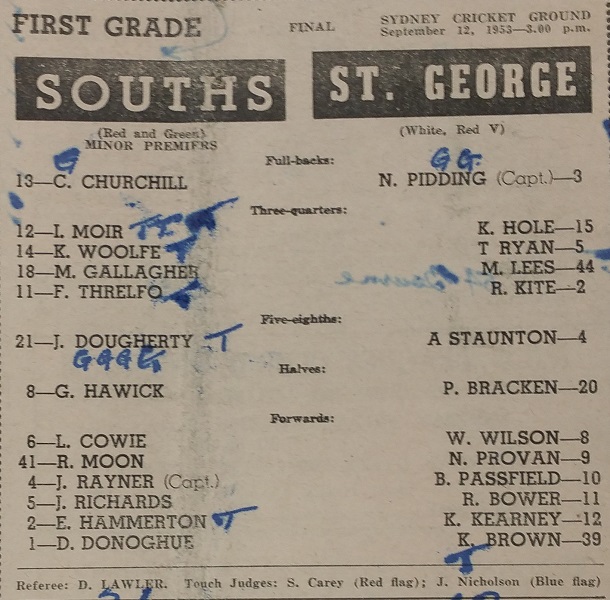 FIRST GRADE FINAL SYDNEY CRICKET GROUND
September 12, 1953—3.00 p.m.
SOUTHS ST. GEORGE
(Red and Green) (White, Red V)
MINOR PREMIERS
Full-backs:
G G G.
13—C. CHURCHILL N. PIDDING (Capt.)—3
Three-quarters:
12—I. MOIR T T K. HOLE—15
14—K. WOOLFE T T RYAN—5
18—M. GALLAGHER M. LEES—44
11—F. THRELFO R. KITE—2
Five-eighths:
21—J. DOUGHERTY T A STAUNTON—4
G G G G
Halves:
8—G. HAWICK P. BRACKEN—20
Forwards:
6—L. COWIE W. WILSON—8
41—R. MOON N. PROVAN—9
4—J. RAYNER (Capt.) B. PASSFIELD—10
5—J. RICHARDS R. BOWER—11
2—E. HAMMERTON T K. KEARNEY—12
1—D. DONOGHUE K. BROWN—39
T
Referee: D. LAWLER. Touch Judges: S. Carey (Red flag); J. Nicholson (Blue flag)